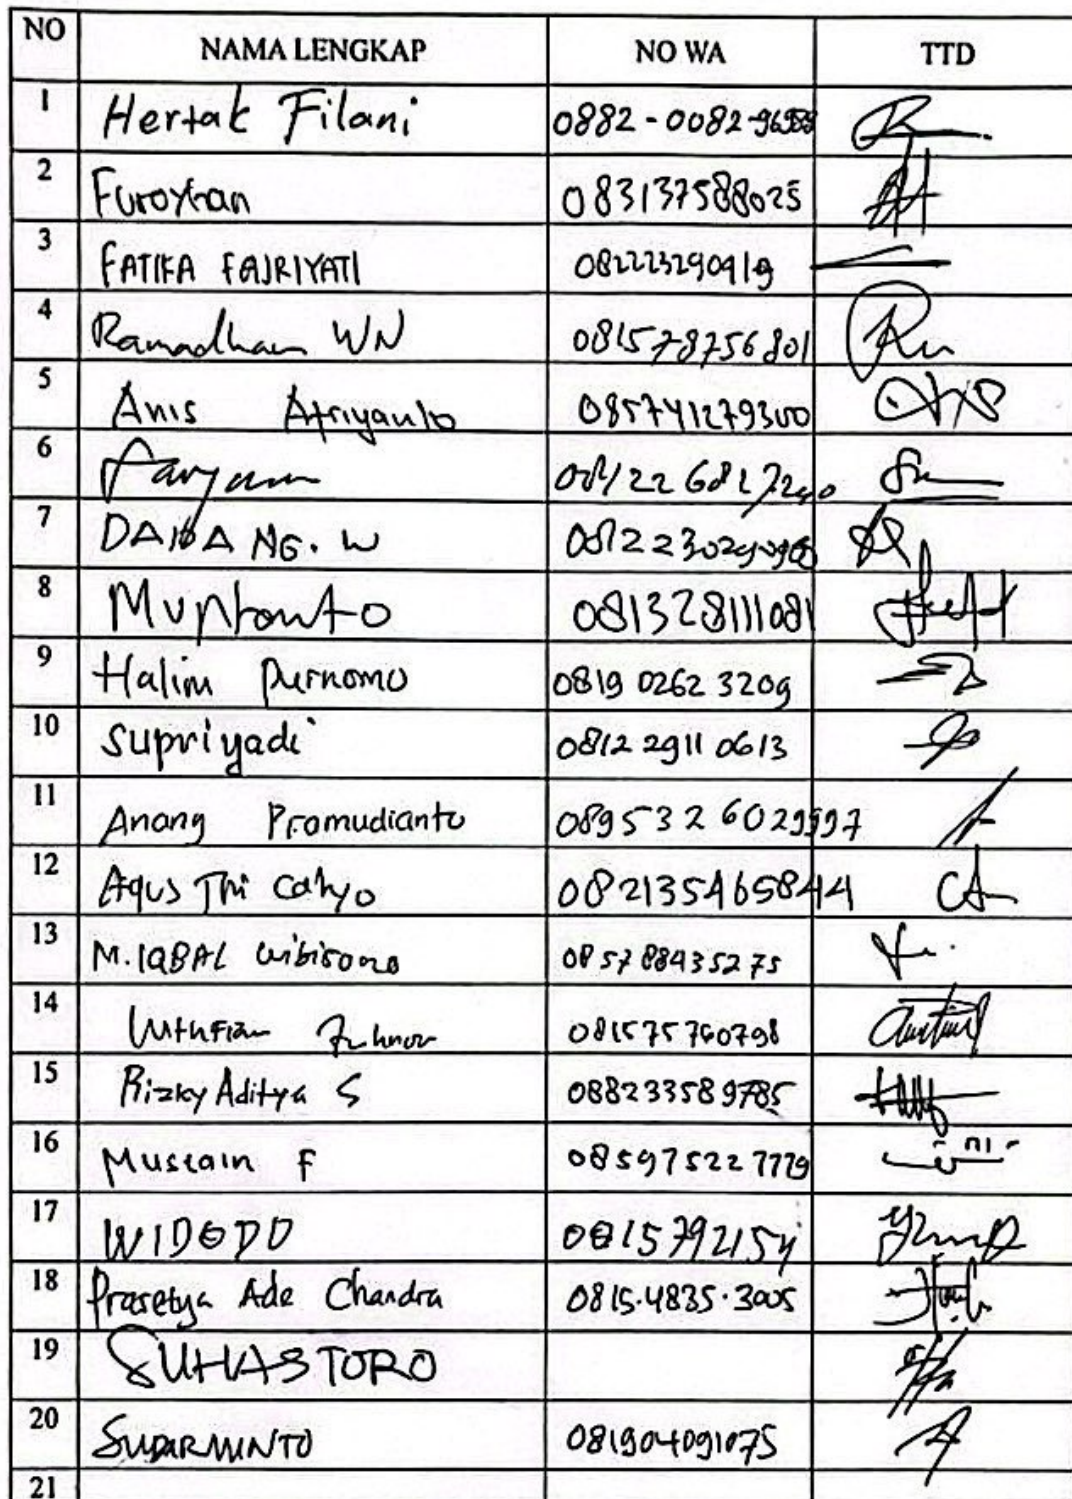 NO NAMA LENGKAP NO WA TTD
1 Hertak Filani 0882-0082-
2 Furoyhan 083137588025
3 FATIKA FAJRIYATI 082223290919
4 Ramadhan WN 081578756801
5 Anis Afriyanto 085741279300
6
7 NG. W
8 081328111081
9 Halim Purnomo 0819 0262 3209
10 supriyadi 0812 2911 0613
11 Anang Promudianto 0895326029997
12 Agus Tri Cahyo 082135465844
13 M. IQBAL wibisono 085788435275
14 081575760798
15 Rizky Aditya S 088233589785
16 Mustain F 085975227779
17 WIDODO 0815792154
18 Prasetya Ade Chandra 0815.4835.3005
19 SUHASTORO
20 SUPARMINTO 081904091075
21